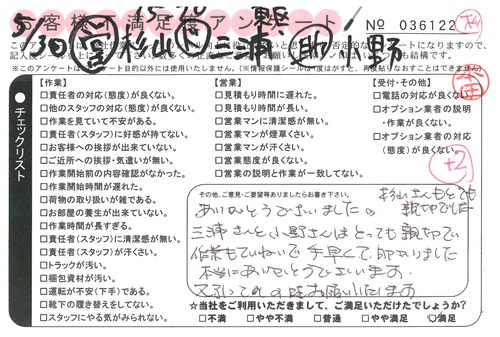 お客様不満足度アンケート
No 036122
5/30 杉山 三浦 助 小野
チェックリスト
【作業】
□責任者の対応(態度)が良くない。
□他のスタッフの対応(態度)が良くない。
□作業を見ていて不安がある。
□責任者(スタッフ)に好感が持てない。
□お客様への挨拶が出来ていない。
□ご近所への挨拶・気遣いが無い。
□作業開始前の内容確認がなかった。
□作業開始時間が遅れた。
□荷物の取り扱いが雑である。
□お部屋の養生が出来ていない。
□作業時間が長すぎる。
□責任者(スタッフ)に清潔感が無い。
□責任者(スタッフ)が汗くさい。
□トラックが汚い。
□梱包資材が汚い。
□運転が不安(下手)である。
□靴下の履き替えをしてない。
□スタッフにやる気がみられない。
【営業】
□見積もり時間に遅れた。
□見積もり時間が長い。
□営業マンに清潔感が無い。
□営業マンが煙草くさい。
□営業マンが汗くさい。
□営業態度が良くない。
□営業の説明と作業が一致してない。
【受付・その他】
□電話の対応が良くない。
□オプション業者の説明
・作業が良くない。
□オプション業者の対応
(態度)が良くない。
+2
その他、ご意見・ご要望等ありましたらお書き下さい。
杉山さんもとても
親切でした
ありがとうございました。
三浦さんと小野さんはとっても親切でい
作業もていねいで手早くて、助かりました
本当にありがとうございます。
の時お願いいたします
☆当社をご利用いただきまして、ご満足いただけたでしょうか?
□不満 □やや不満 □普通 □やや満足 ☑満足